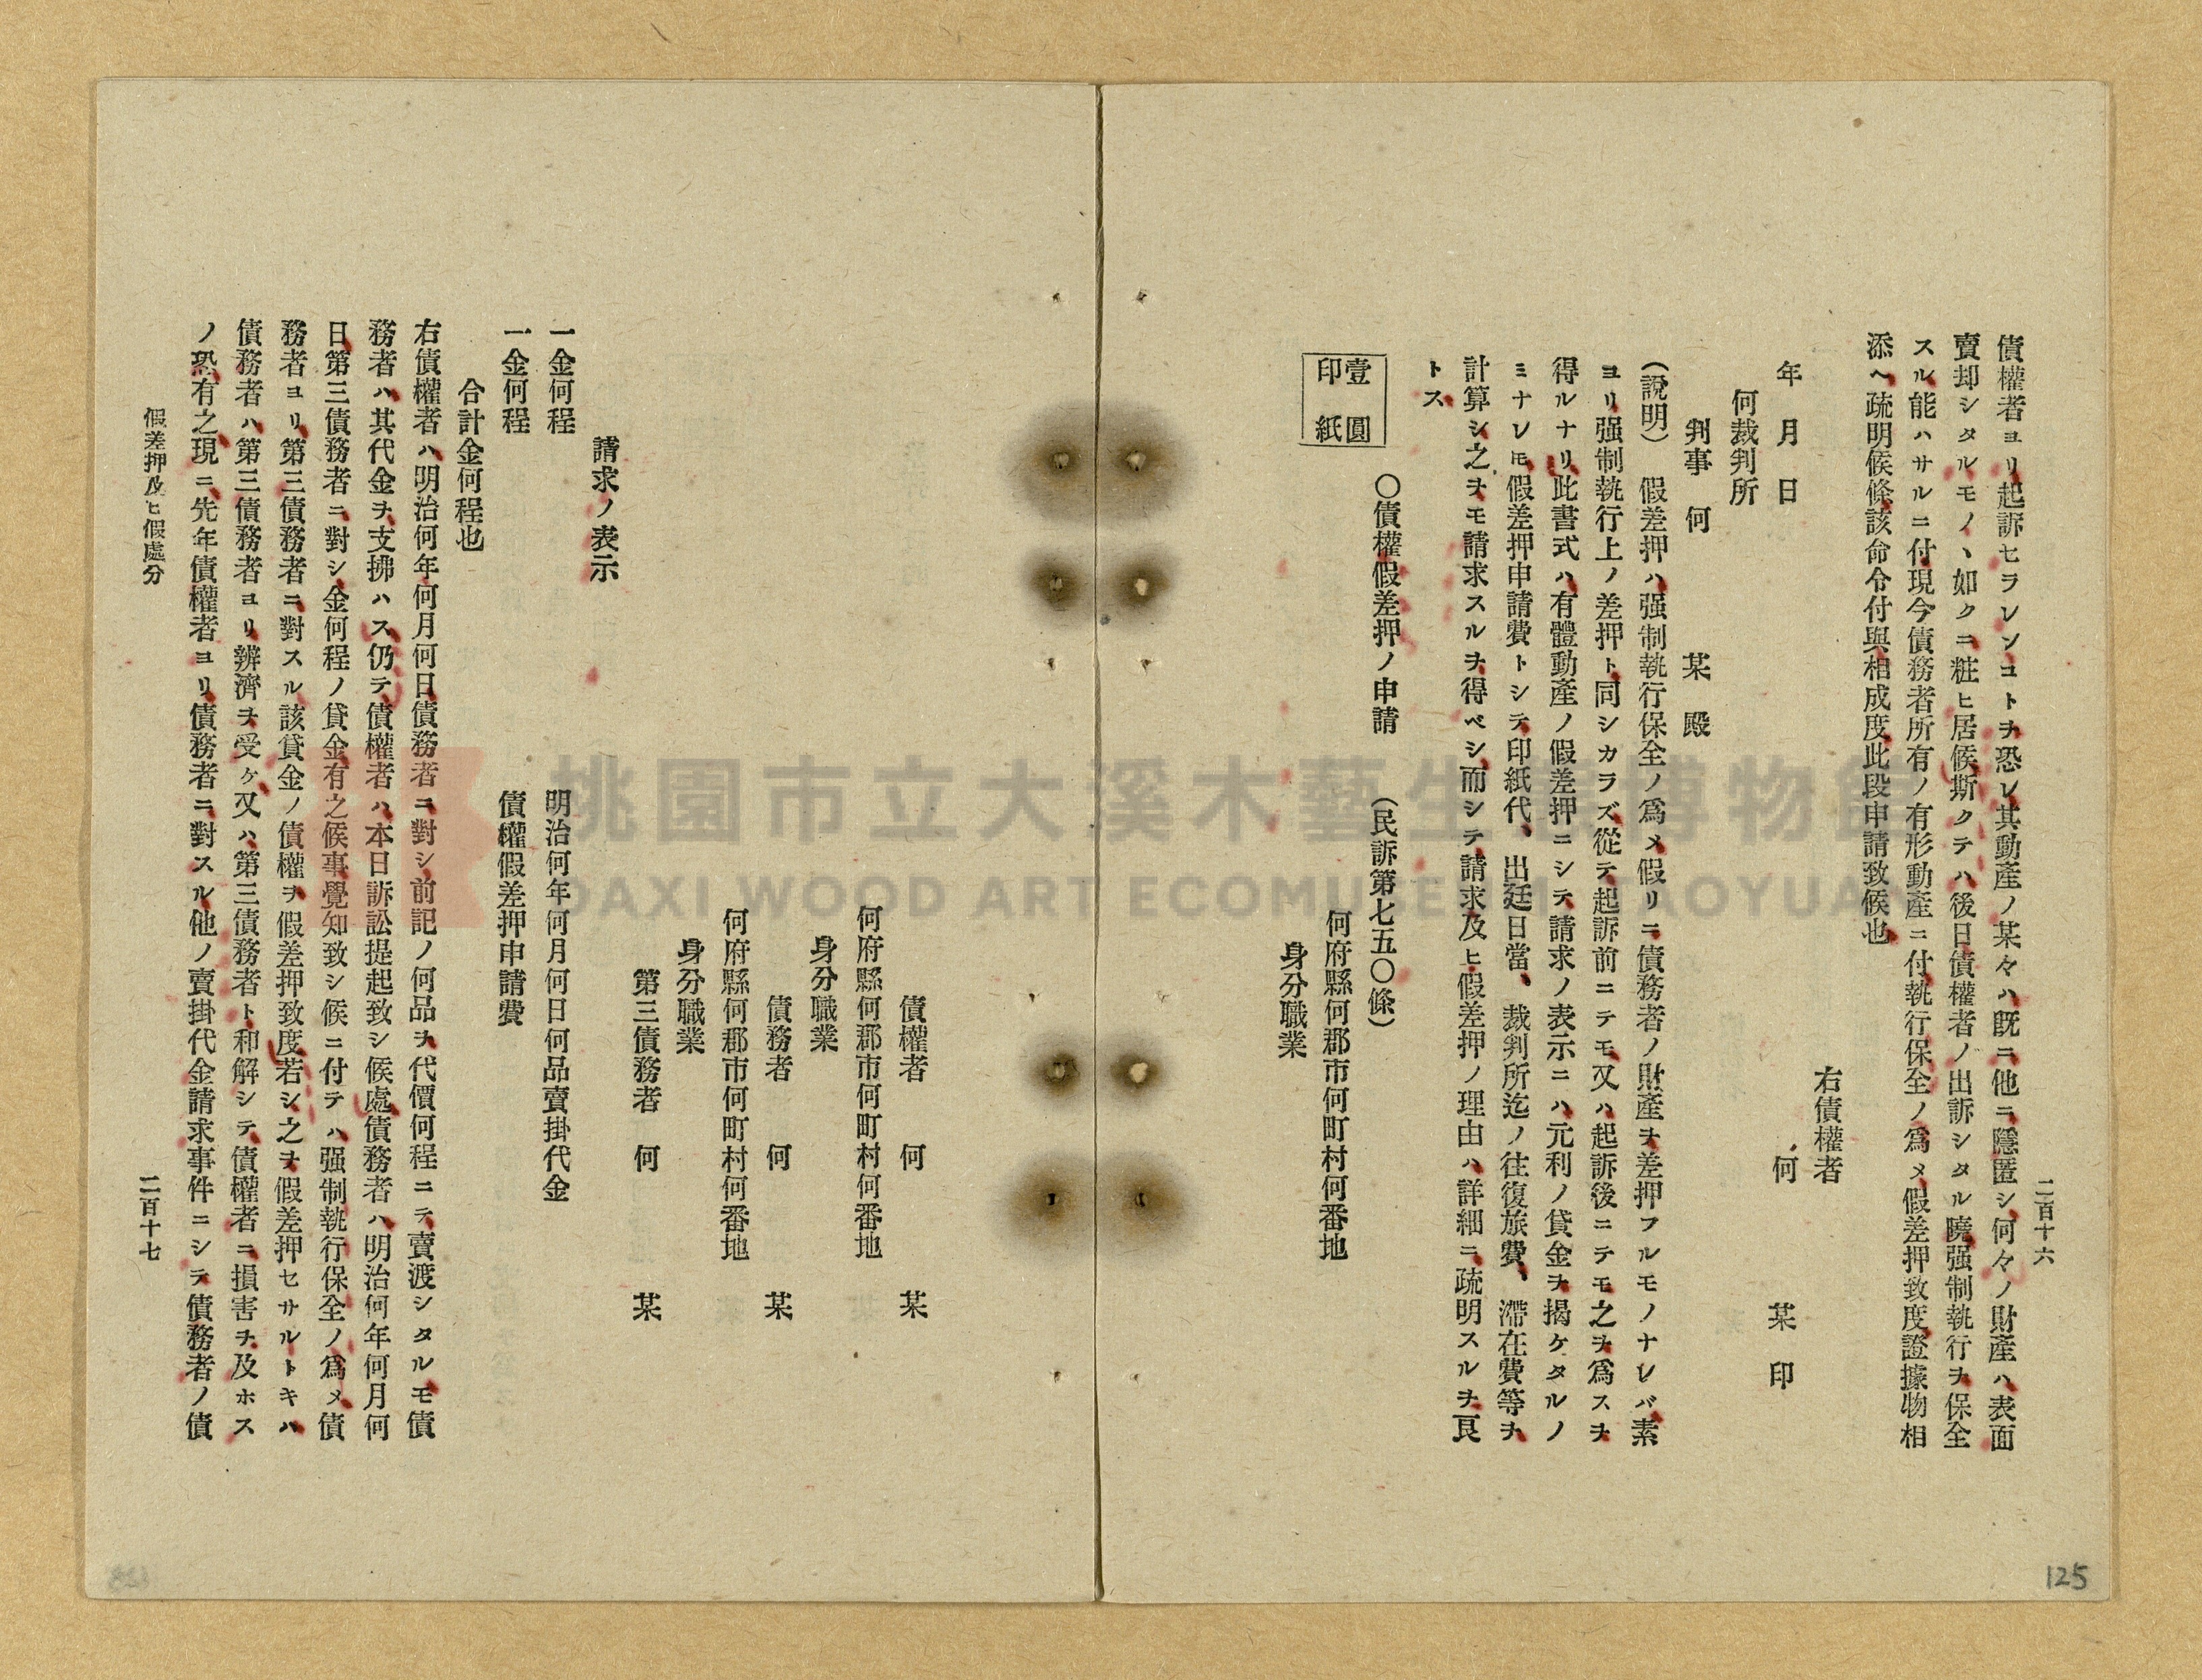 二百十六
債權者ヨリ起訴セラレンコトヲ恐レ其動產ノ某々ハ既ニ他ニ隱匿シ何々ノ財產ハ表面
賣却シタルモノヽ如クニ粧ヒ居候斯クテハ後日債權者ノ出訴シタル曉强制執行ヲ保全
スル能ハサルニ付現今債務者所有ノ有形動產ニ付執行保全ノ爲メ假差押致度證據物相
添ヘ疏明候條該命令付與相成度此段申請致候也
右債權者
何 某 印
年 月 日
何裁判所
判事 何 某 殿
(說明) 假差押ハ强制執行保全ノ爲メ假リニ債務者ノ財產ヲ差押フルモノナレバ素
ヨリ强制執行上ノ差押ト同シカラズ從テ起訴前ニテモ又ハ起訴後ニテモ之ヲ爲スヲ
得ルナリ此書式ハ有體動產ノ假差押ニシテ請求ノ表示ニハ元利ノ貸金ヲ揭ケタルノ
ミナレモ假差押申請費トシテ印紙代、出廷日當、裁判所迄ノ往復旅費、滯在費等ヲ
計算シ之ヲモ請求スルヲ得ベシ而シテ請求及ヒ假差押ノ理由ハ詳細ニ疏明スルヲ良
トス
○債權假差押ノ申請 (民訴第七五〇條)
壹圓
印紙
何府縣何郡市何町村何番地
身分職業
債權者 何 某
何府縣何郡市何町村何番地
身分職業
債務者 何 某
何府縣何郡市何町村何番地
身分職業
第三債務者 何 某
請求ノ表示
一金何程 明治何年何月何日何品賣掛代金
一金何程 債權假差押申請費
合計金何程也
右債權者ハ明治何年何月何日債務者ニ對シ前記ノ何品ヲ代價何程ニテ賣渡シタルモ債
務者ハ其代金ヲ支拂ハス仍テ債權者ハ本日訴訟提起致シ候處債務者ハ明治何年何月何
日第三債務者ニ對シ金何程ノ貸金有之候事覺知致シ候ニ付テハ强制執行保全ノ爲メ債
務者ヨリ第三債務者ニ對スル該貸金ノ債權ヲ假差押致度若シ之ヲ假差押セサルトキハ
債務者ハ第三債務者ヨリ辨濟ヲ受ケ又ハ第三債務者ト和解シテ債權者ニ損害ヲ及ホス
ノ恐有之現ニ先年債權者ヨリ債務者ニ對スル他ノ賣掛代金請求事件ニシテ債務者ノ債
假差押及ヒ假處分
二百十七
125
桃園市立大溪木藝生態博物館
DAXI WOOD ART ECOMUSEUM, TAOYUAN